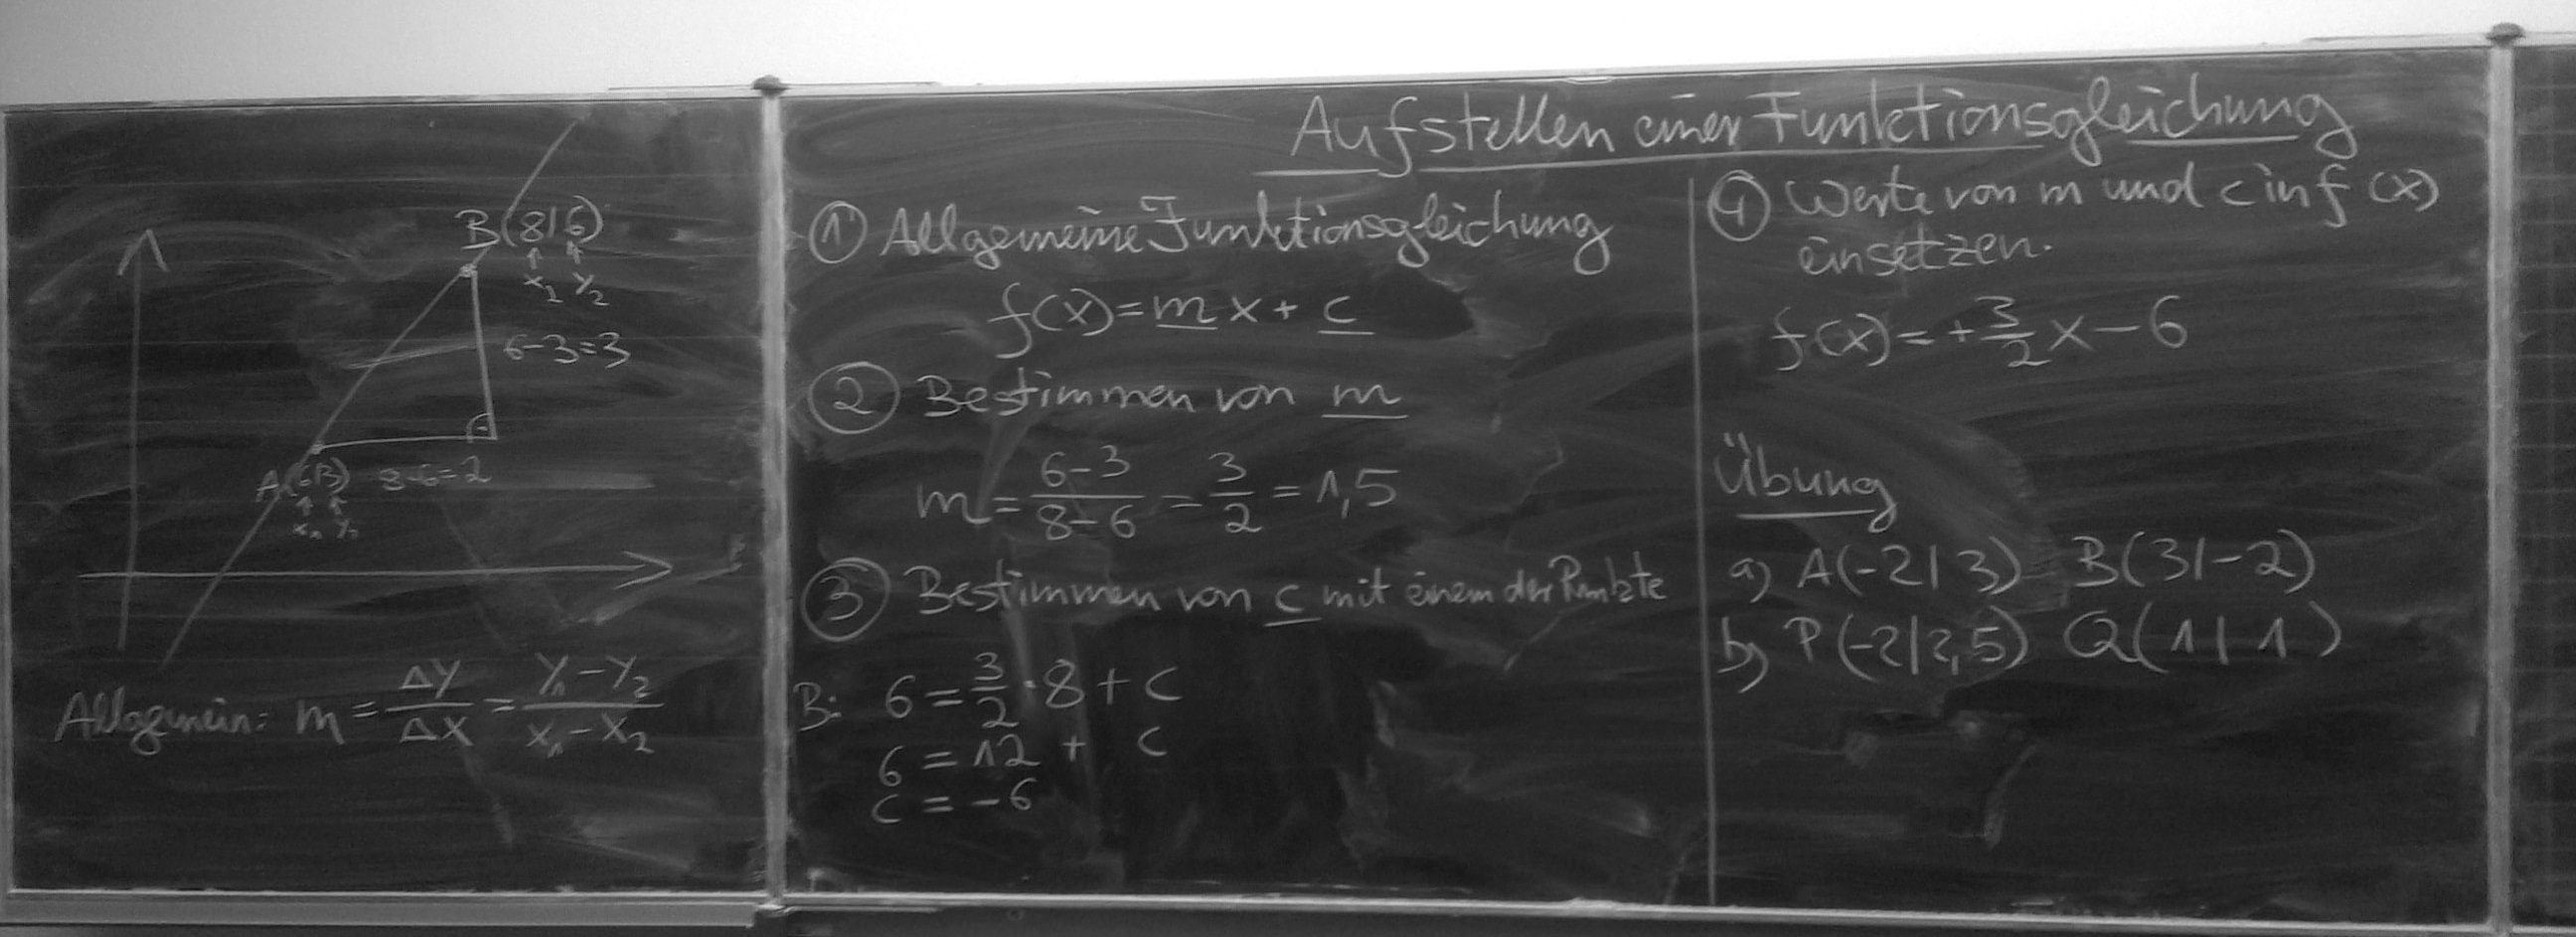 B(8|6)
x₂ y₂
6-3=3
A(6|3) 8-6=2
x₁ y₁
Allgemein: m = Δy/Δx = (y₁-y₂)/(x₁-x₂)
Aufstellen einer Funktionsgleichung
① Allgemeine Funktionsgleichung
f(x)=mx+c
② Bestimmen von m
m = (6-3)/(8-6) = 3/2 = 1,5
③ Bestimmen von c mit einem der Punkte
B: 6 = 3/2 · 8 + c
6 = 12 + c
c = -6
④ Werte von m und c in f(x)
einsetzen.
f(x) = +3/2 x - 6
Übung
a) A(-2|3) B(3|-2)
b) P(-2|2,5) Q(1|1)